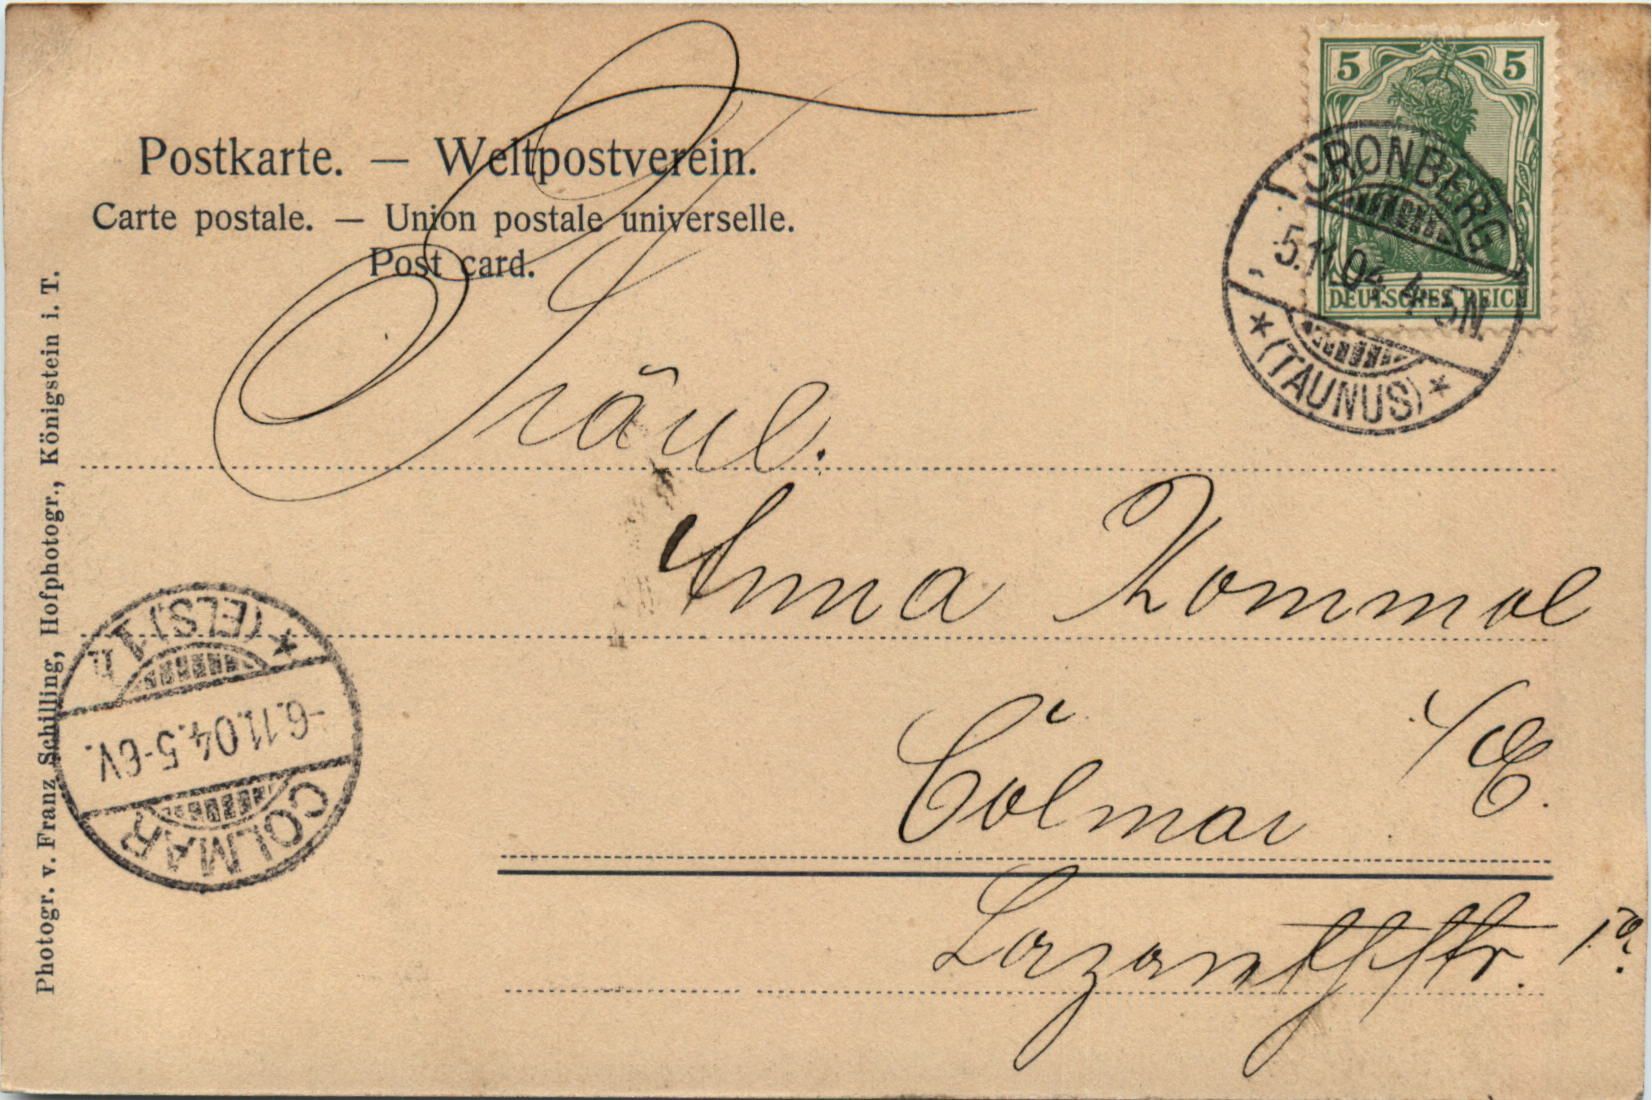 Postkarte. — Weltpostverein.
Carte postale. — Union postale universelle.
Post card.
5 5
DEUTSCHES REICH
CRONBERG
5.11.04. 4-5N.
* (TAUNUS) *
Fräul.
Anna Kommal
Colmar i/E.
Lazarettstr. 1a.
Photogr. v. Franz Schilling, Hofphotogr., Königstein i. T.
COLMAR
-6.11.04.5-6V.
* (ELS) 1